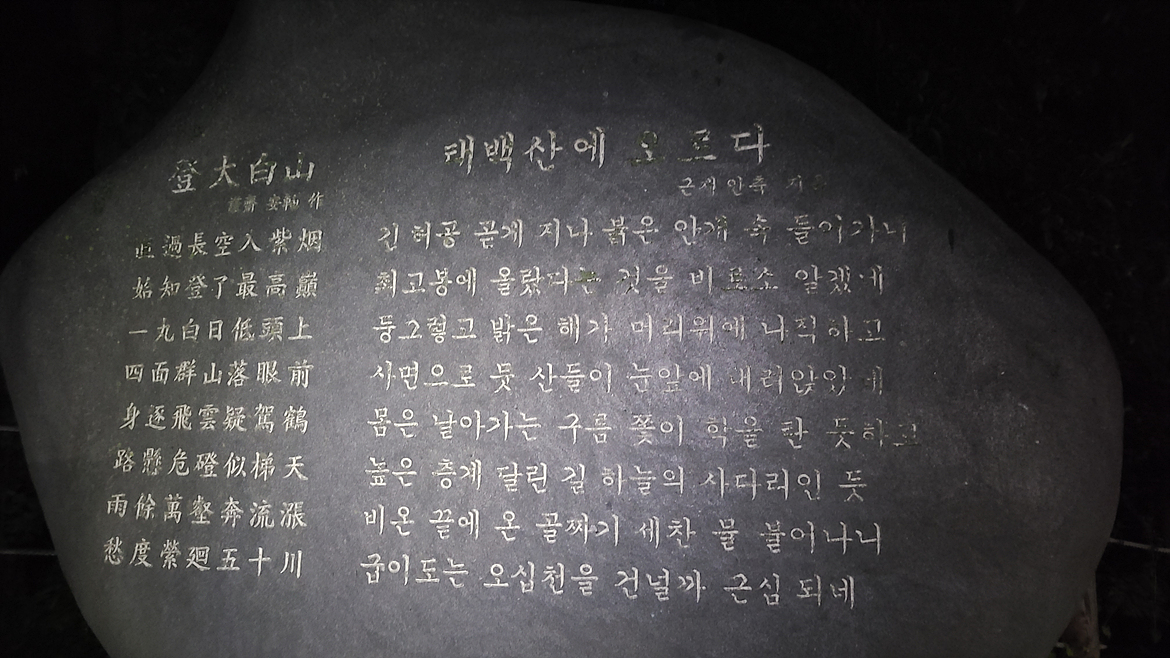 登大白山
謹齋 安軸 作
直過長空入紫烟
始知登了最高巓
一九白日低頭上
四面群山落眼前
身逐飛雲疑駕鶴
路懸危磴似梯天
雨餘萬壑奔流漲
愁度縈廻五十川
태백산에 오르다
근재 안축 지음
긴 허공 곧게 지나 붉은 안개 속 들어가니
최고봉에 올랐다는 것을 비로소 알겠네
둥그렇고 밝은 해가 머리위에 나직하고
사면으로 뭇 산들이 눈앞에 내려앉았네
몸은 날아가는 구름 쫓이 학을 탄 듯하고
높은 층계 달린 길 하늘의 사다리인 듯
비온 끝에 온 골짜기 세찬 물 불어나니
굽이도는 오십천을 건널까 근심 되네